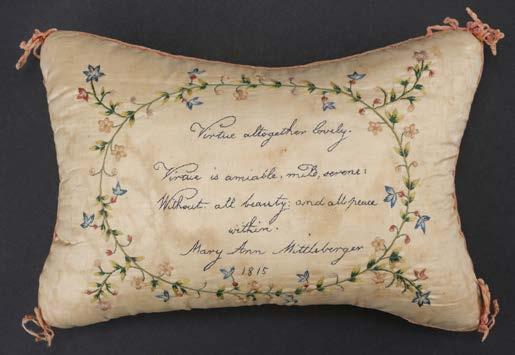 Virtue altogether lovely.
Virtue is amiable, mild, serene:
Without all beauty; and all peace
within.
Mary Ann Mittlsberger
1815